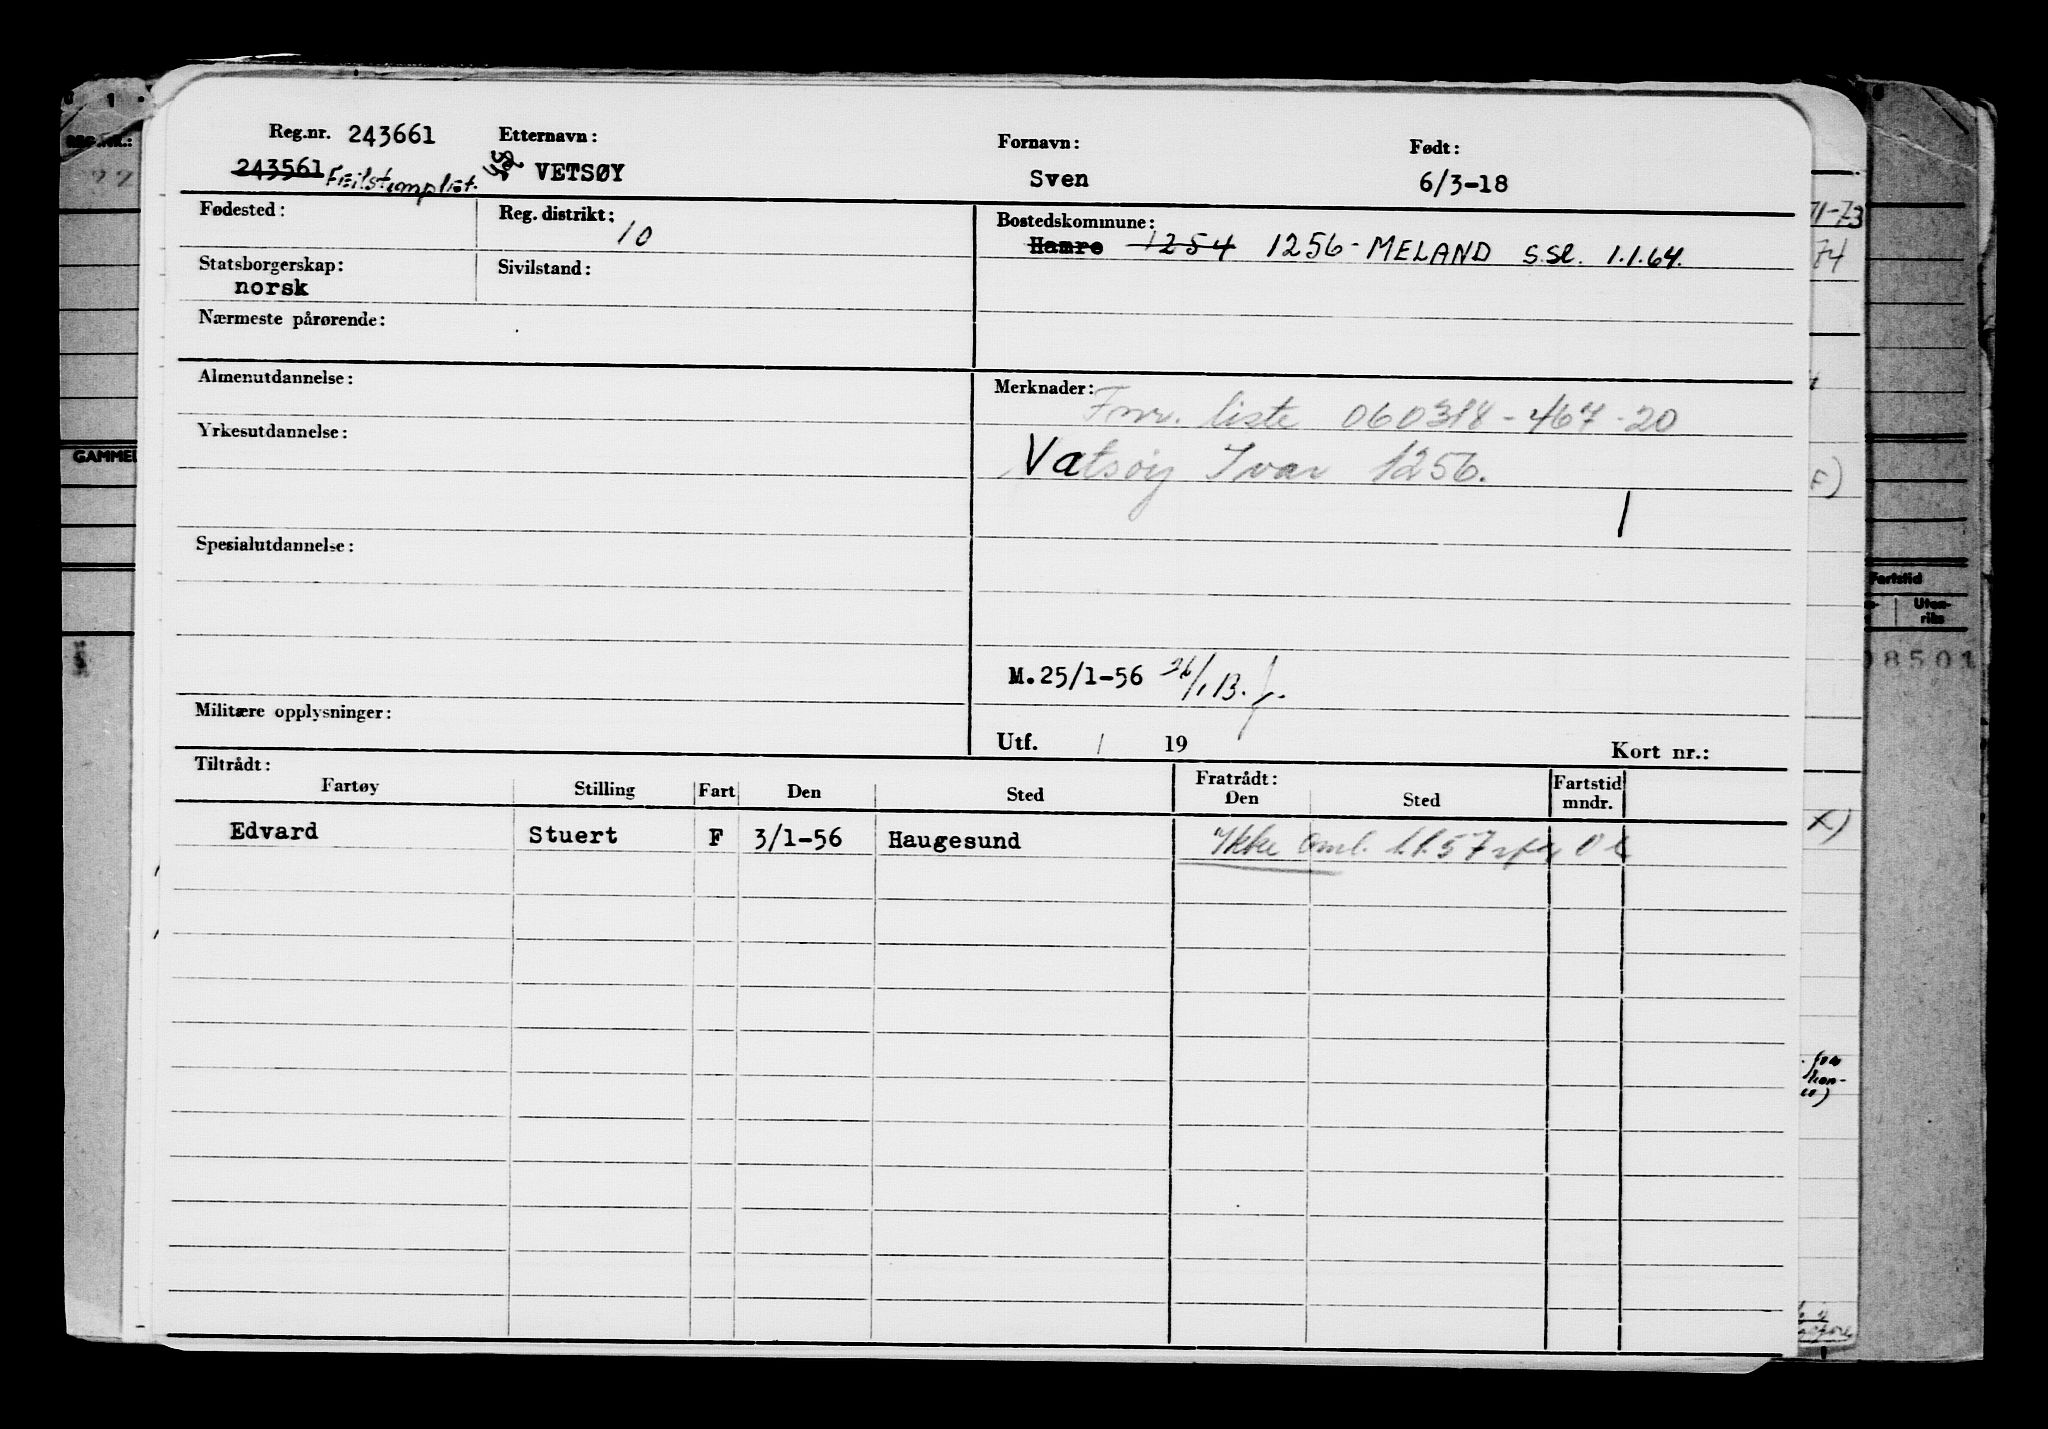 Reg.nr. 243661 Etternavn: Fornavn: Født:
243561 Feilstemplet. VETSØY Sven 6/3-18
Fødested: Reg. distrikt: 10 Bostedskommune:
Hamre 1254 1256-MELAND SSL. 1.1.64.
Statsborgerskap: Sivilstand:
norsk
Nærmeste pårørende:
Almenutdannelse: Merknader:
liste 060318-467-20
Yrkesutdannelse:
Vatsøy Ivar 1256.
Spesialutdannelse:
M.25/1-56 26/1 B.
Militære opplysninger:
Utf. / 19 Kort nr.:
Tiltrådt: Fratrådt: Fartstid
Fartøy Stilling Fart Den Sted Den Sted mndr.
Edvard Stuert F 3/1-56 Haugesund Ikke 1.1.57
REG.NR.:
GAMMEL
71-73
74
F)
Fartstid
Uten-
riks
08501
X)